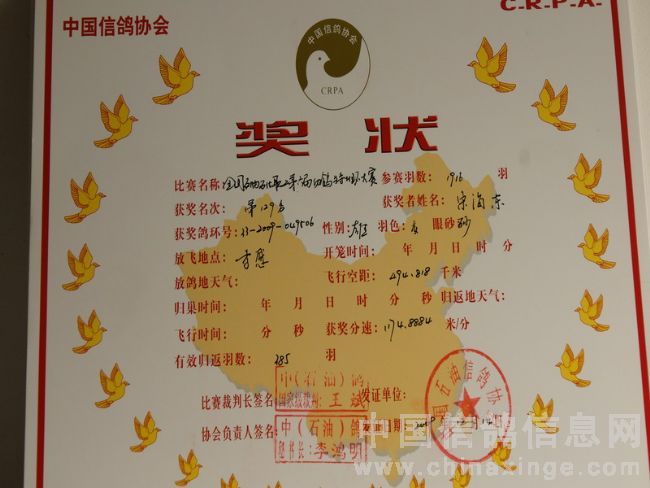 C-R-P-A-
中国信鸽协会
中国信鸽协会
CRPA
奖 状
比赛名称: 参赛羽数: 1916 羽
获奖名次: 第129名 获奖者姓名: 宋海东
获奖鸽环号: 13-2009-049506 性别: 雄 羽色: 眼砂: 砂
放飞地点: 孝感 开笼时间: 年 月 日 时 分
放鸽地天气: 飞行空距: 494.818 千米
归巢时间: 年 月 日 时 分 秒 归返地天气:
飞行时间: 分 秒 获奖分速: 1174.8884 米/分
有效归返羽数: 285 羽
中(石油)鸽
比赛裁判长签名: 国家级裁判: 王 发证单位:
中(石油)鸽
协会负责人签名: 秘书长: 李鸿明 日期: 2009
石油信鸽协
中国信鸽信息网
www.chinaxinge.com